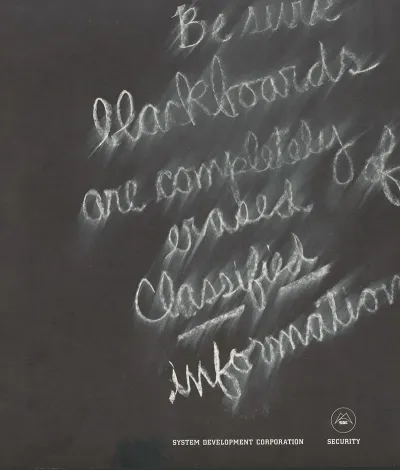 Be sure
blackboards
are completely
erased of
Classified
information
SDC
SYSTEM DEVELOPMENT CORPORATION SECURITY